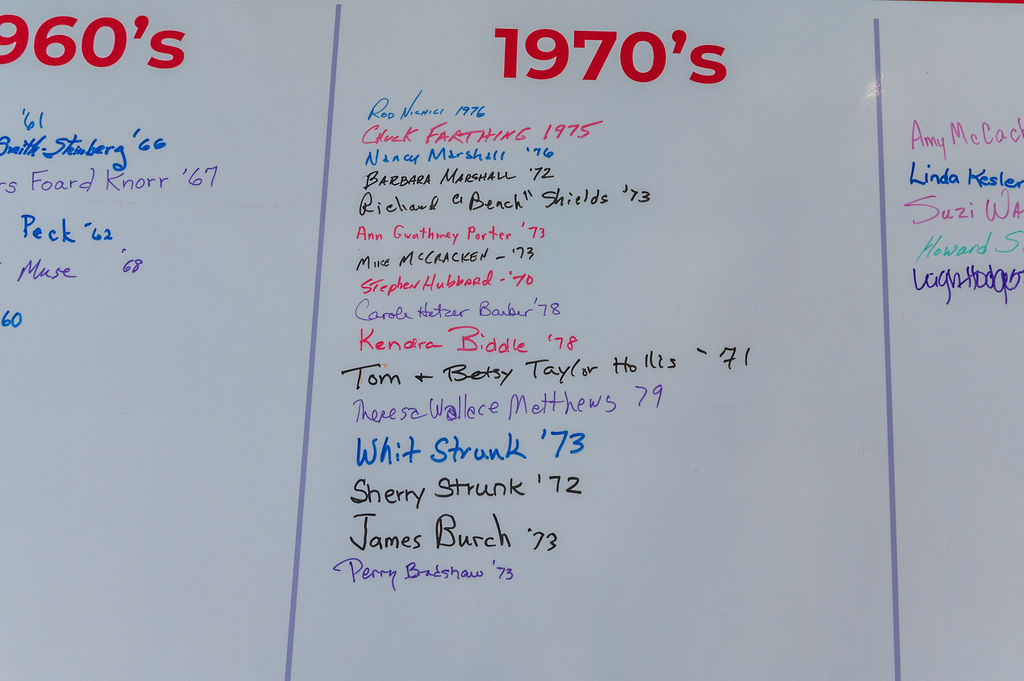 960's
'61
Smith-Steinberg '66
rs Foard Knorr '67
Peck '62
Muse '68
60
1970's
Rod Nichici 1976
Chuck FARTHING 1975
Nancy Marshall '76
BARBARA MARSHALL '72
Richard "Bench" Shields '73
Ann Gwathmey Porter '73
MIKE MCCRACKEN - '73
Stephen Hubbard - '70
Carole Hetzer Barber '78
Kendra Biddle '78
Tom + Betsy Taylor Hollis '71
Theresa Wallace Matthews 79
Whit Strunk '73
Sherry Strunk '72
James Burch '73
Perry Bradshaw '73
Amy McCac
Linda Kesler
Suzi WA
Howard S
Leigh Hodges